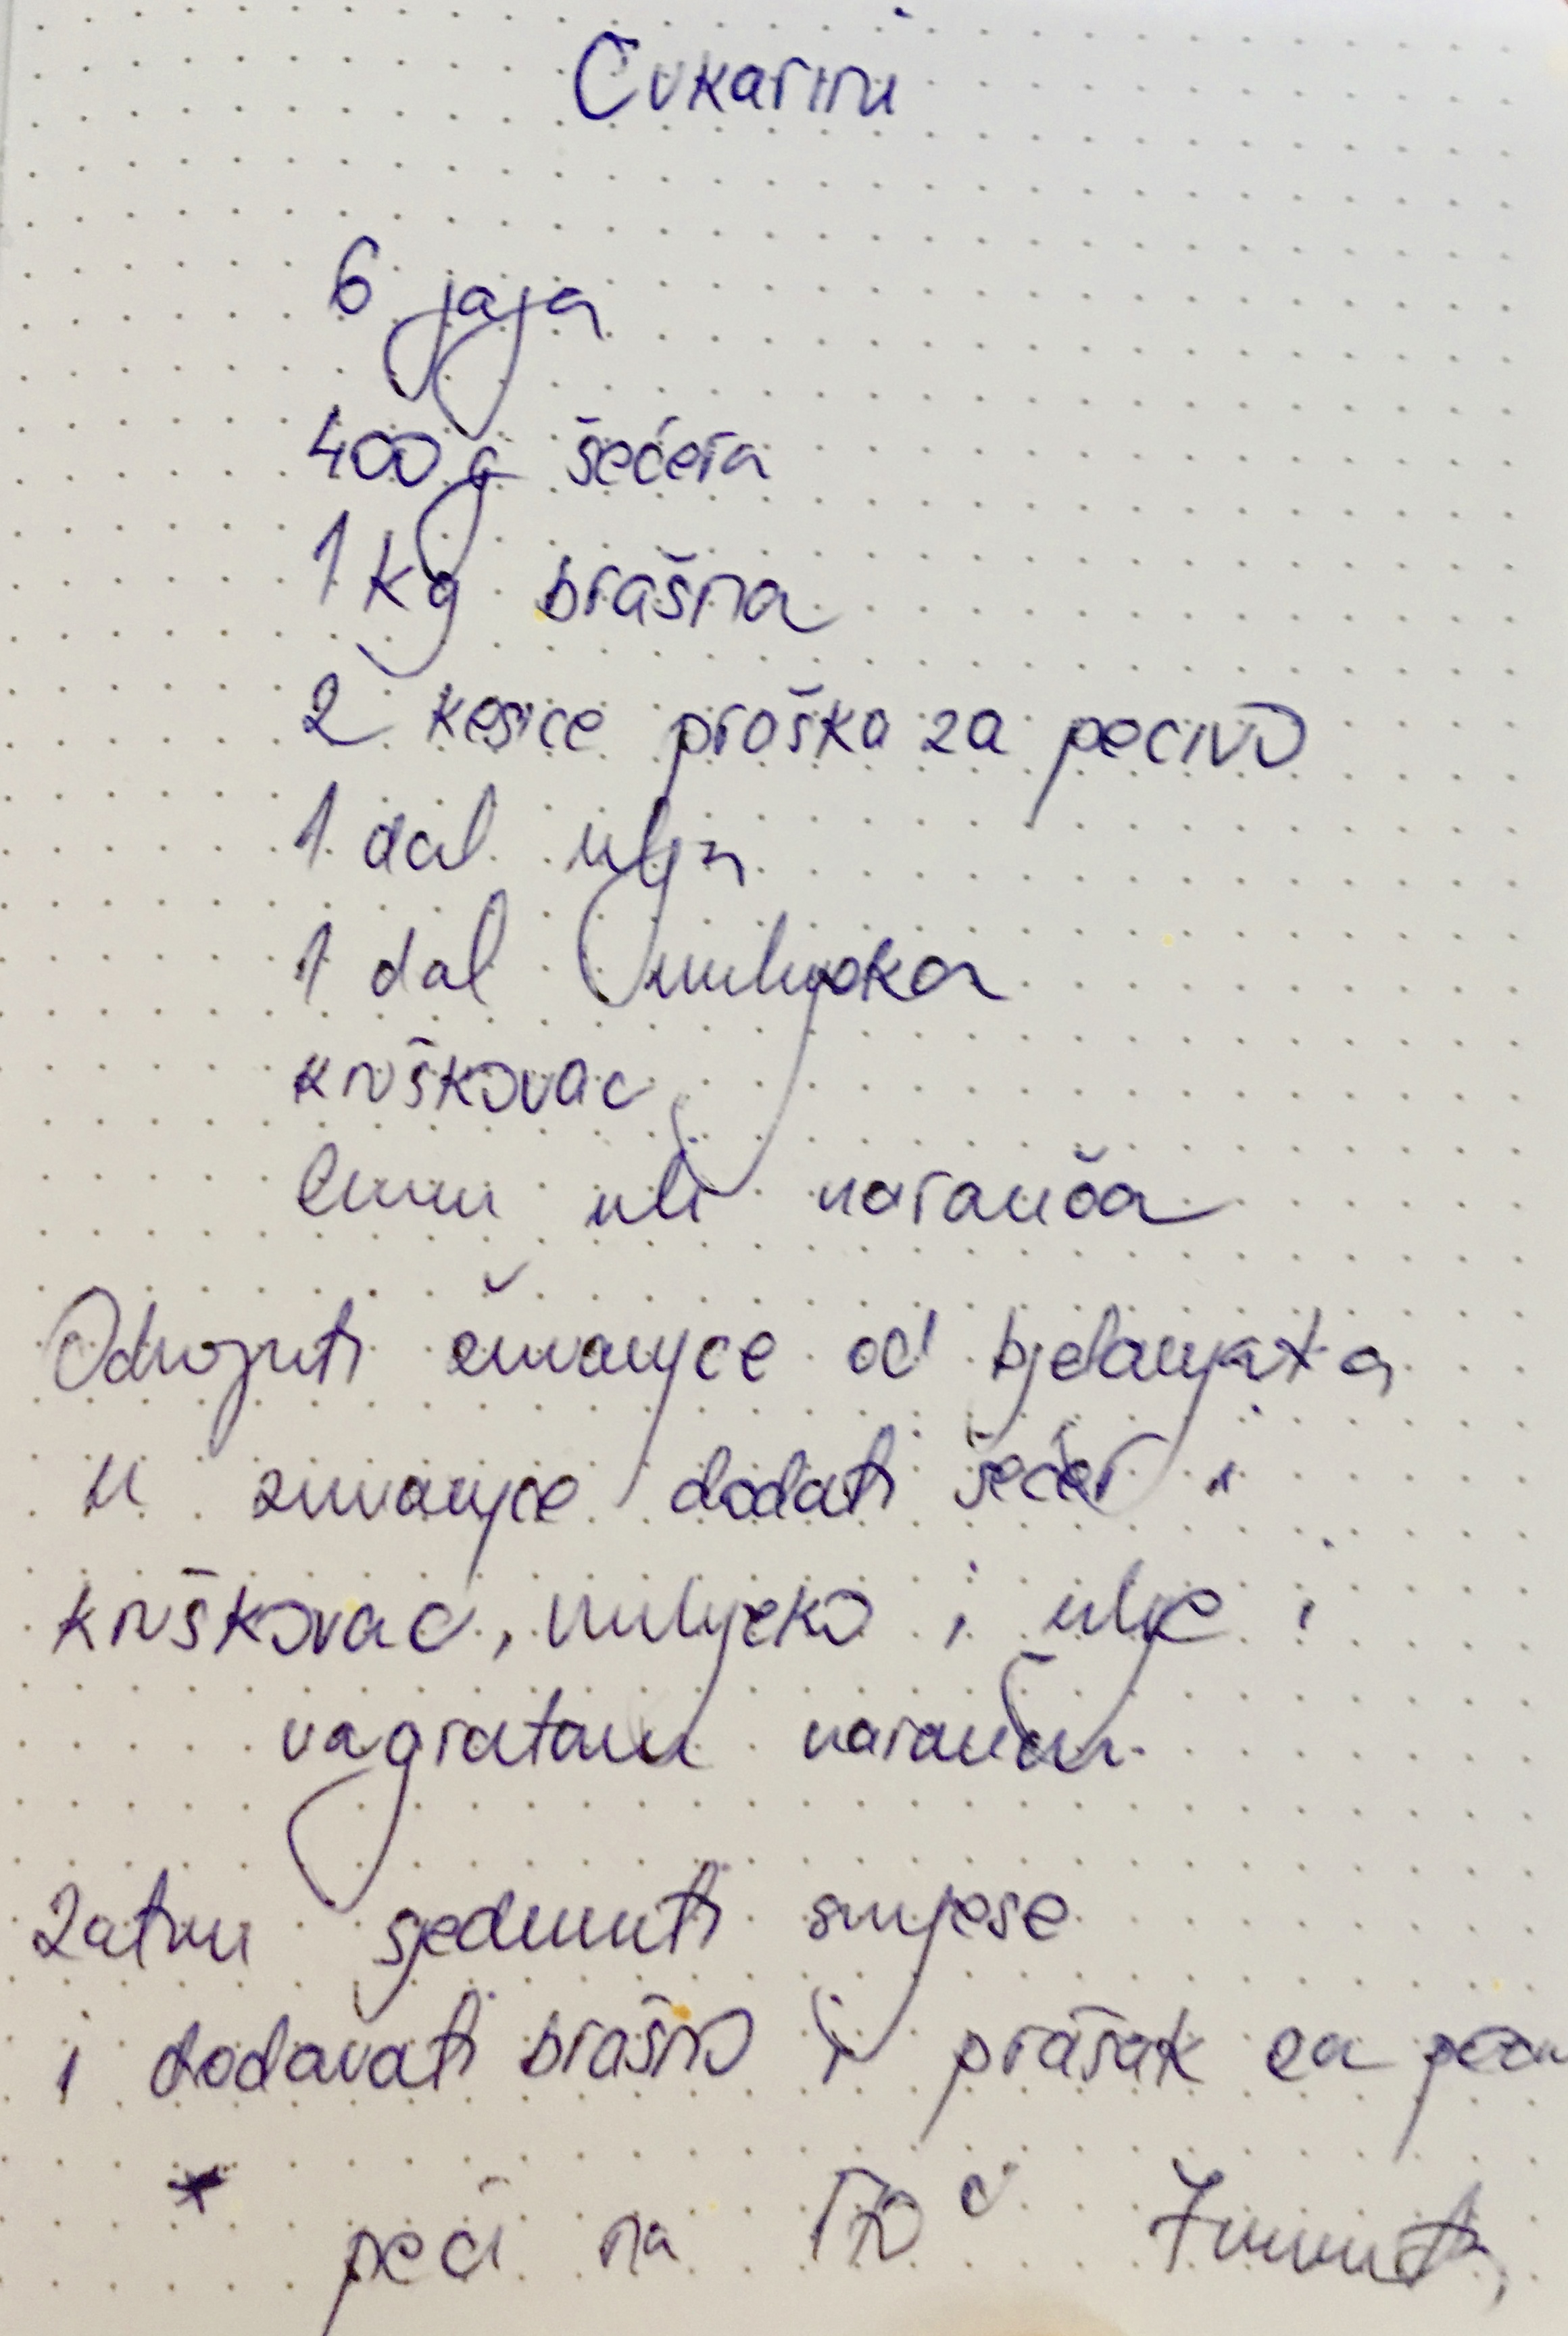 Cukarini
6 jaja
400 g šećera
1 kg brašna
2 kesice praška za pecivo
1 dcl ulja
1 dcl mlijeka
kruškovac
limun ili naranča
Odvojiti žumanjce od bjelanjaka
u žumanjce dodati šećer i
kruškovac, mlijeko i ulje i
nagratanu naranču.
Zatim sjediniti smjese
i dodavati brašno i prašak za
* peći na 170 C 7 minuta